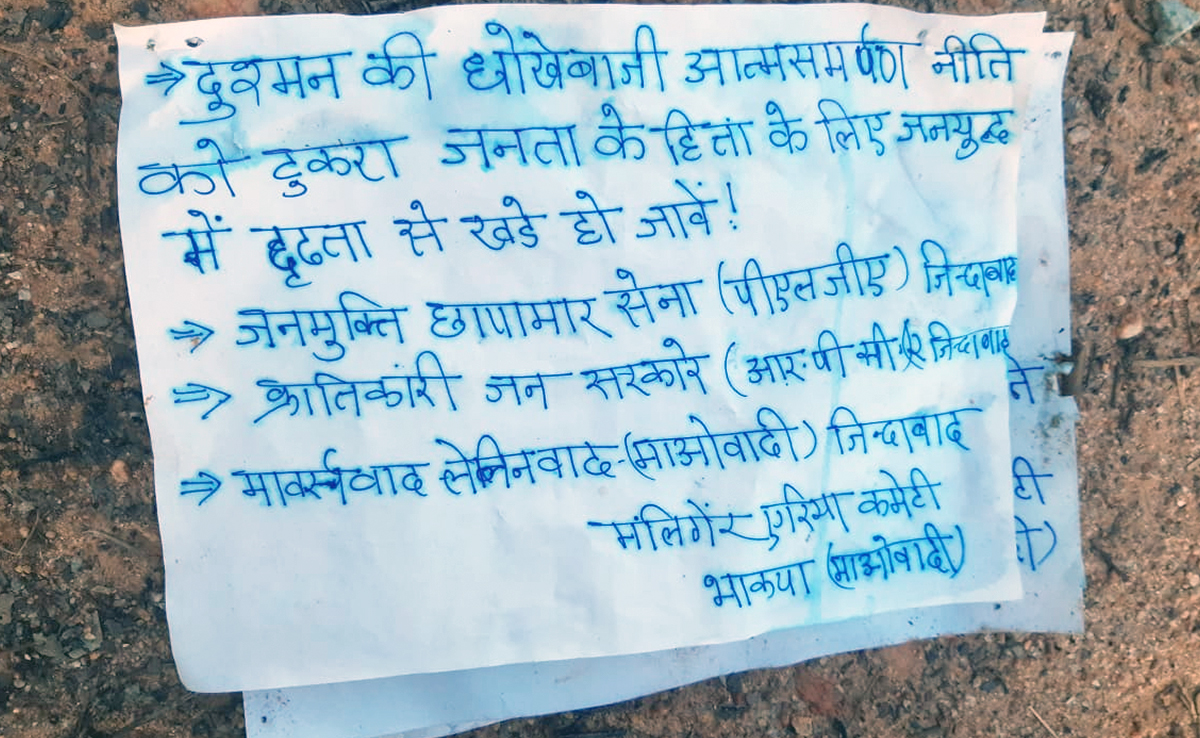 ⇒ दुश्मन की धोखेबाजी आत्मसमर्पण नीति
को टुकरा जनता के हिता के लिए जनयुद्ध
में दृढता से खडे हो जावें!
⇒ जनमुक्ति छापामार सेना (पीएलजीए) जिन्दाबाद
⇒ क्रातिकारी जन सरकारे (आर.पी.सी.) जिन्दाबाद
⇒ मार्क्सवाद लेनिनवाद-(माओवादी) जिन्दाबाद
मलिगेंर एरिया कमेटी
भाकपा (माओवादी)
ने
टी